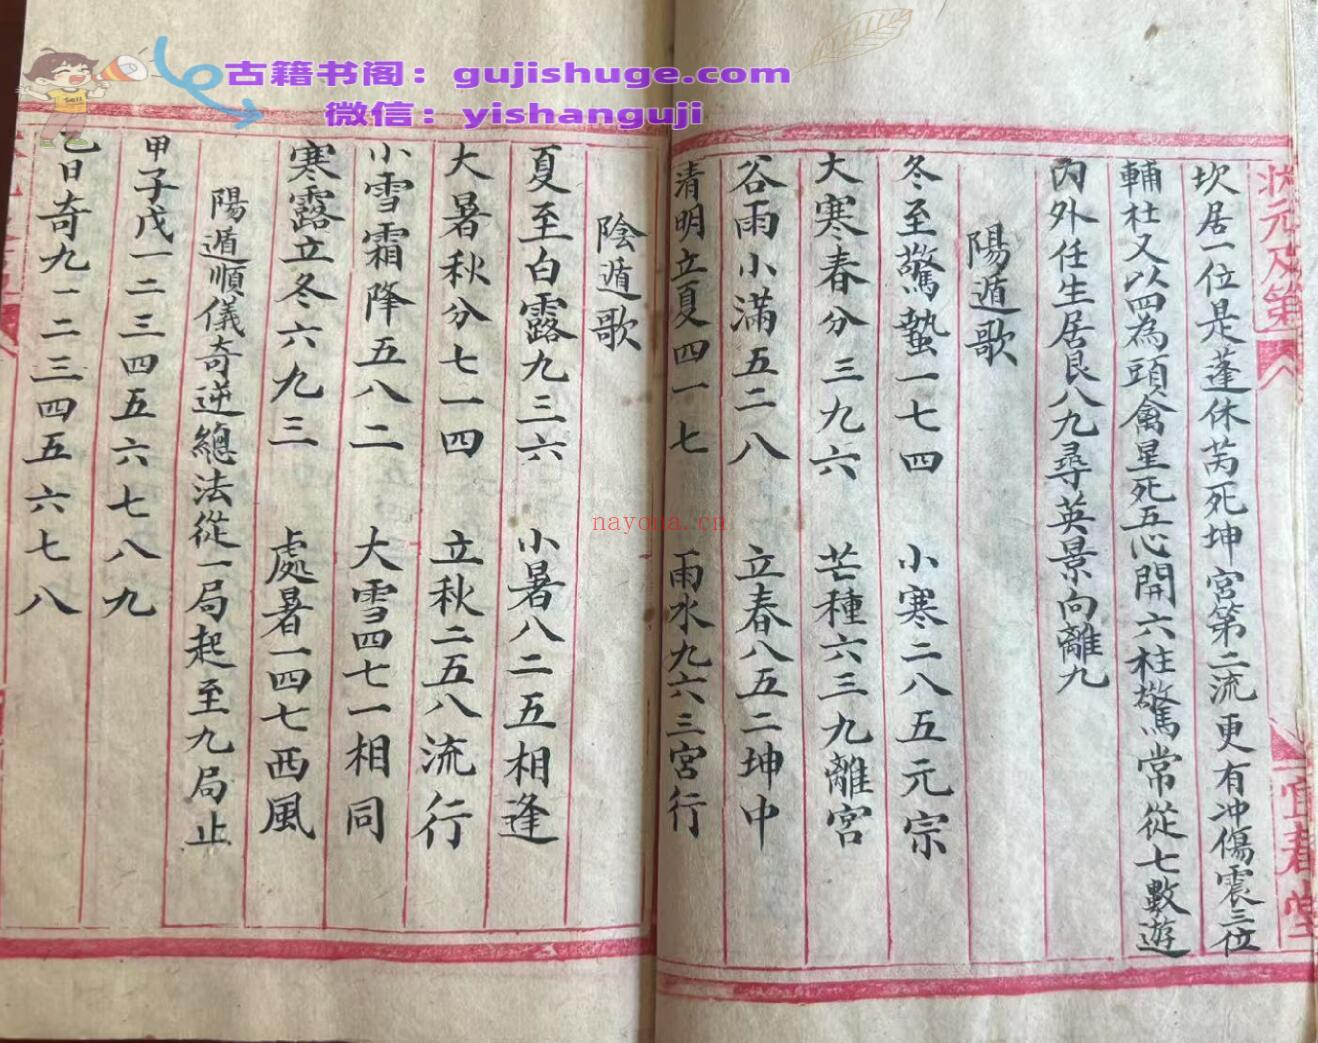 古籍书阁：gujishuge.com
微信：yishanguji
nayona.cn
状元及第
宜春堂
坎居一位是蓬休芮死坤宮第二流更有冲傷震三位
輔杜又以四為頭禽星死五心開六柱驚常從七數遊
内外任生居艮八九尋英景向離九
陽遁歌
冬至驚蟄一七四 小寒二八五元宗
大寒春分三九六 芒種六三九離宮
谷雨小滿五二八 立春八五二坤中
清明立夏四一七 雨水九六三宮行
陰遁歌
夏至白露九三六 小暑八二五相逢
大暑秋分七一四 立秋二五八流行
小雪霜降五八二 大雪四七一相同
寒露立冬六九三 處暑一四七西風
陽遁順儀奇逆總法從一局起至九局止
甲子戊一二三四五六七八九
乙日奇九一二三四五六七八